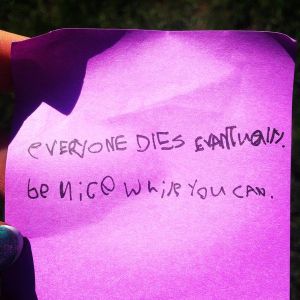 eVERYONE DIES EVANTUALLY.
be NiCe WHiLe YOU CAN.